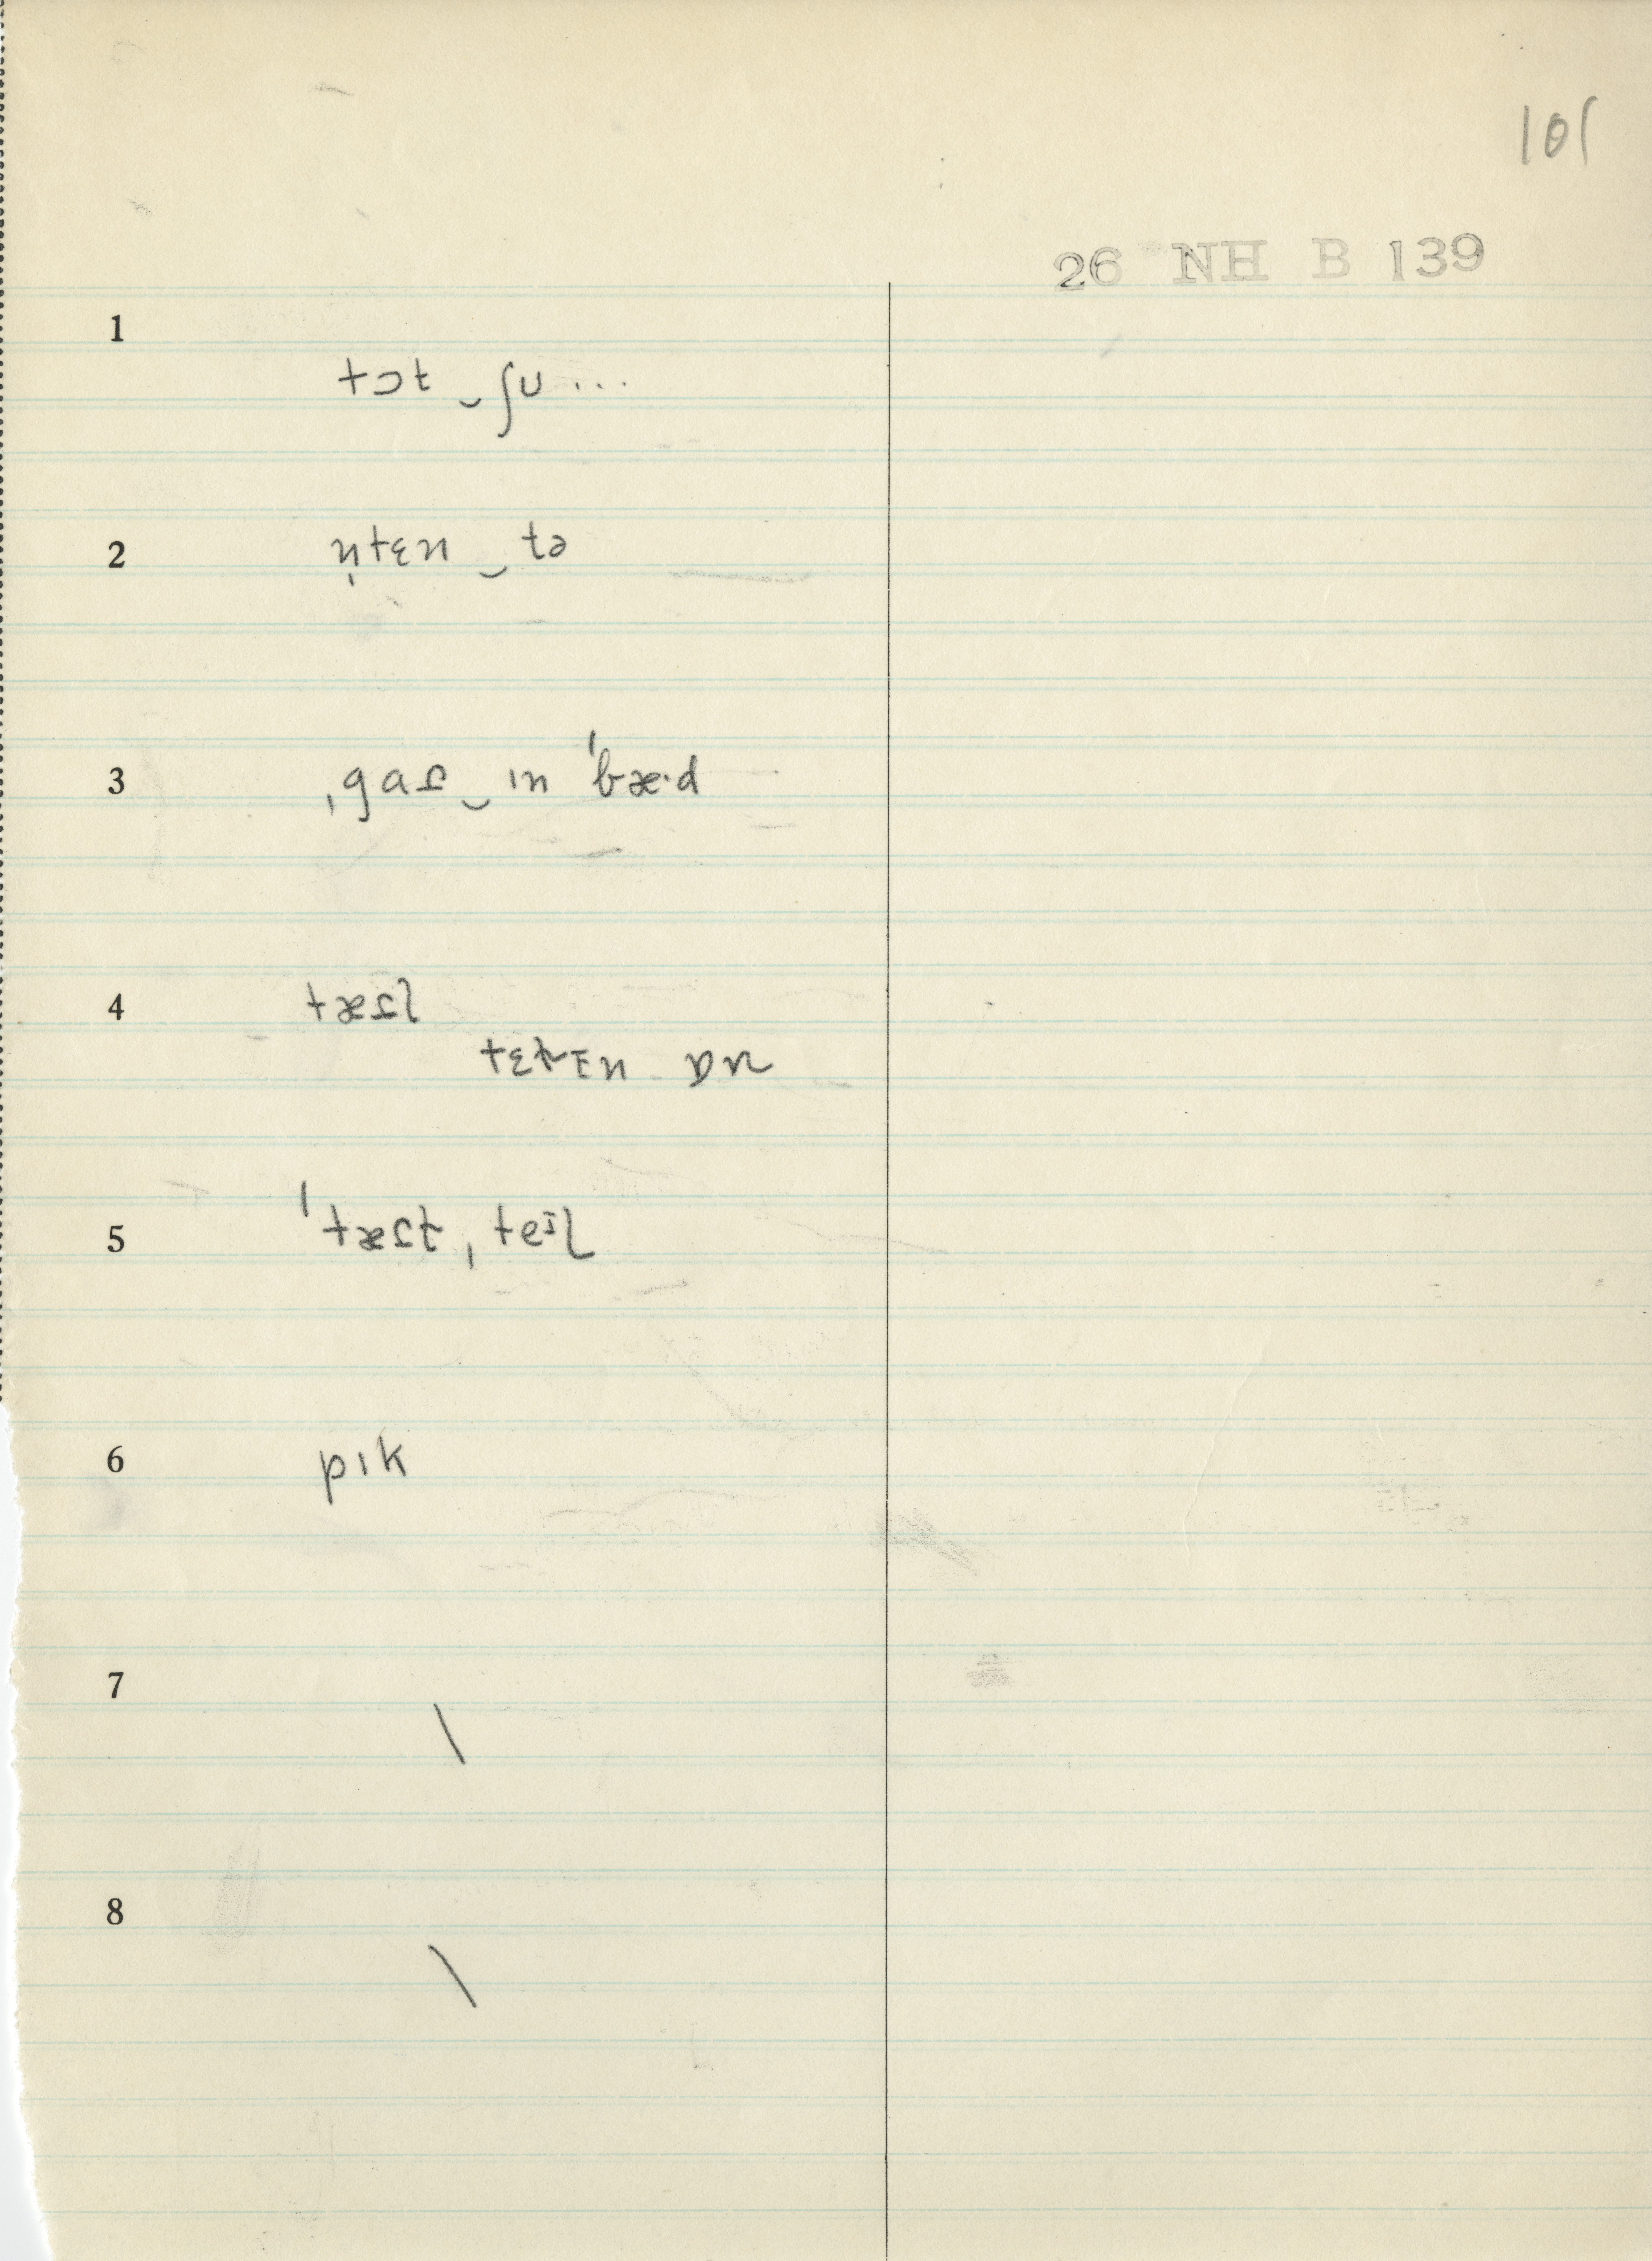 101
26 NH B 139
1
tɔt‿ʃu...
2
n̩tɛn‿tə
3
ˌgaɾ‿ɪn ˈbæ·d
4
tæɾl
tɛtɪn ɒn
5
ˈtæɾt ˌteɪl
6
pɪk
7
\
8
\